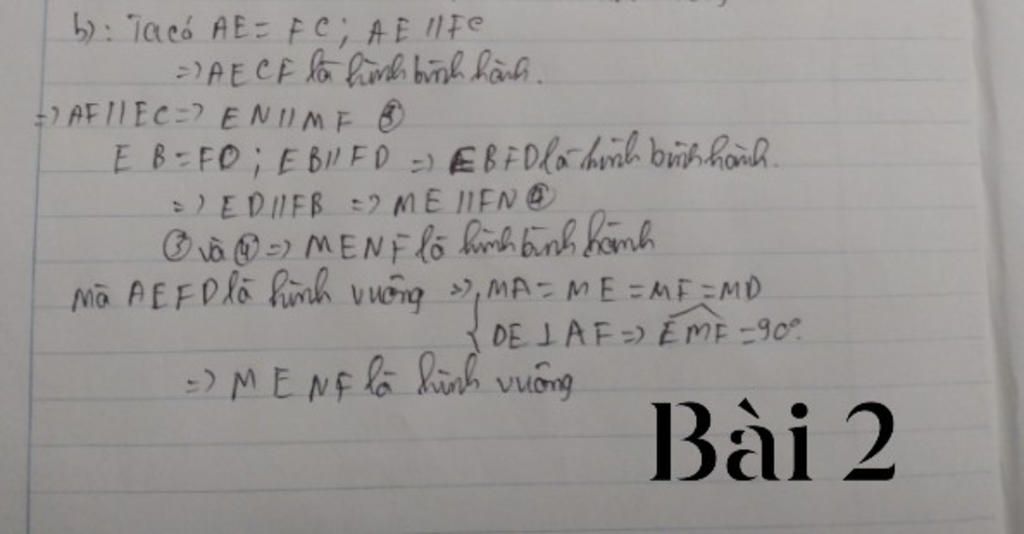 b): Ta có AE = FC; AE // FC
=> AECF là hình bình hành.
=> AF // EC => EN // MF ③
EB = FD; EB // FD => EBFD là hình bình hành.
=> ED // FB => ME // FN ④
③ và ④ => MENF là hình bình hành
mà AEFD là hình vuông => { MA = ME = MF = MD
DE ⊥ AF => EMF = 90°.
=> MENF là hình vuông
Bài 2